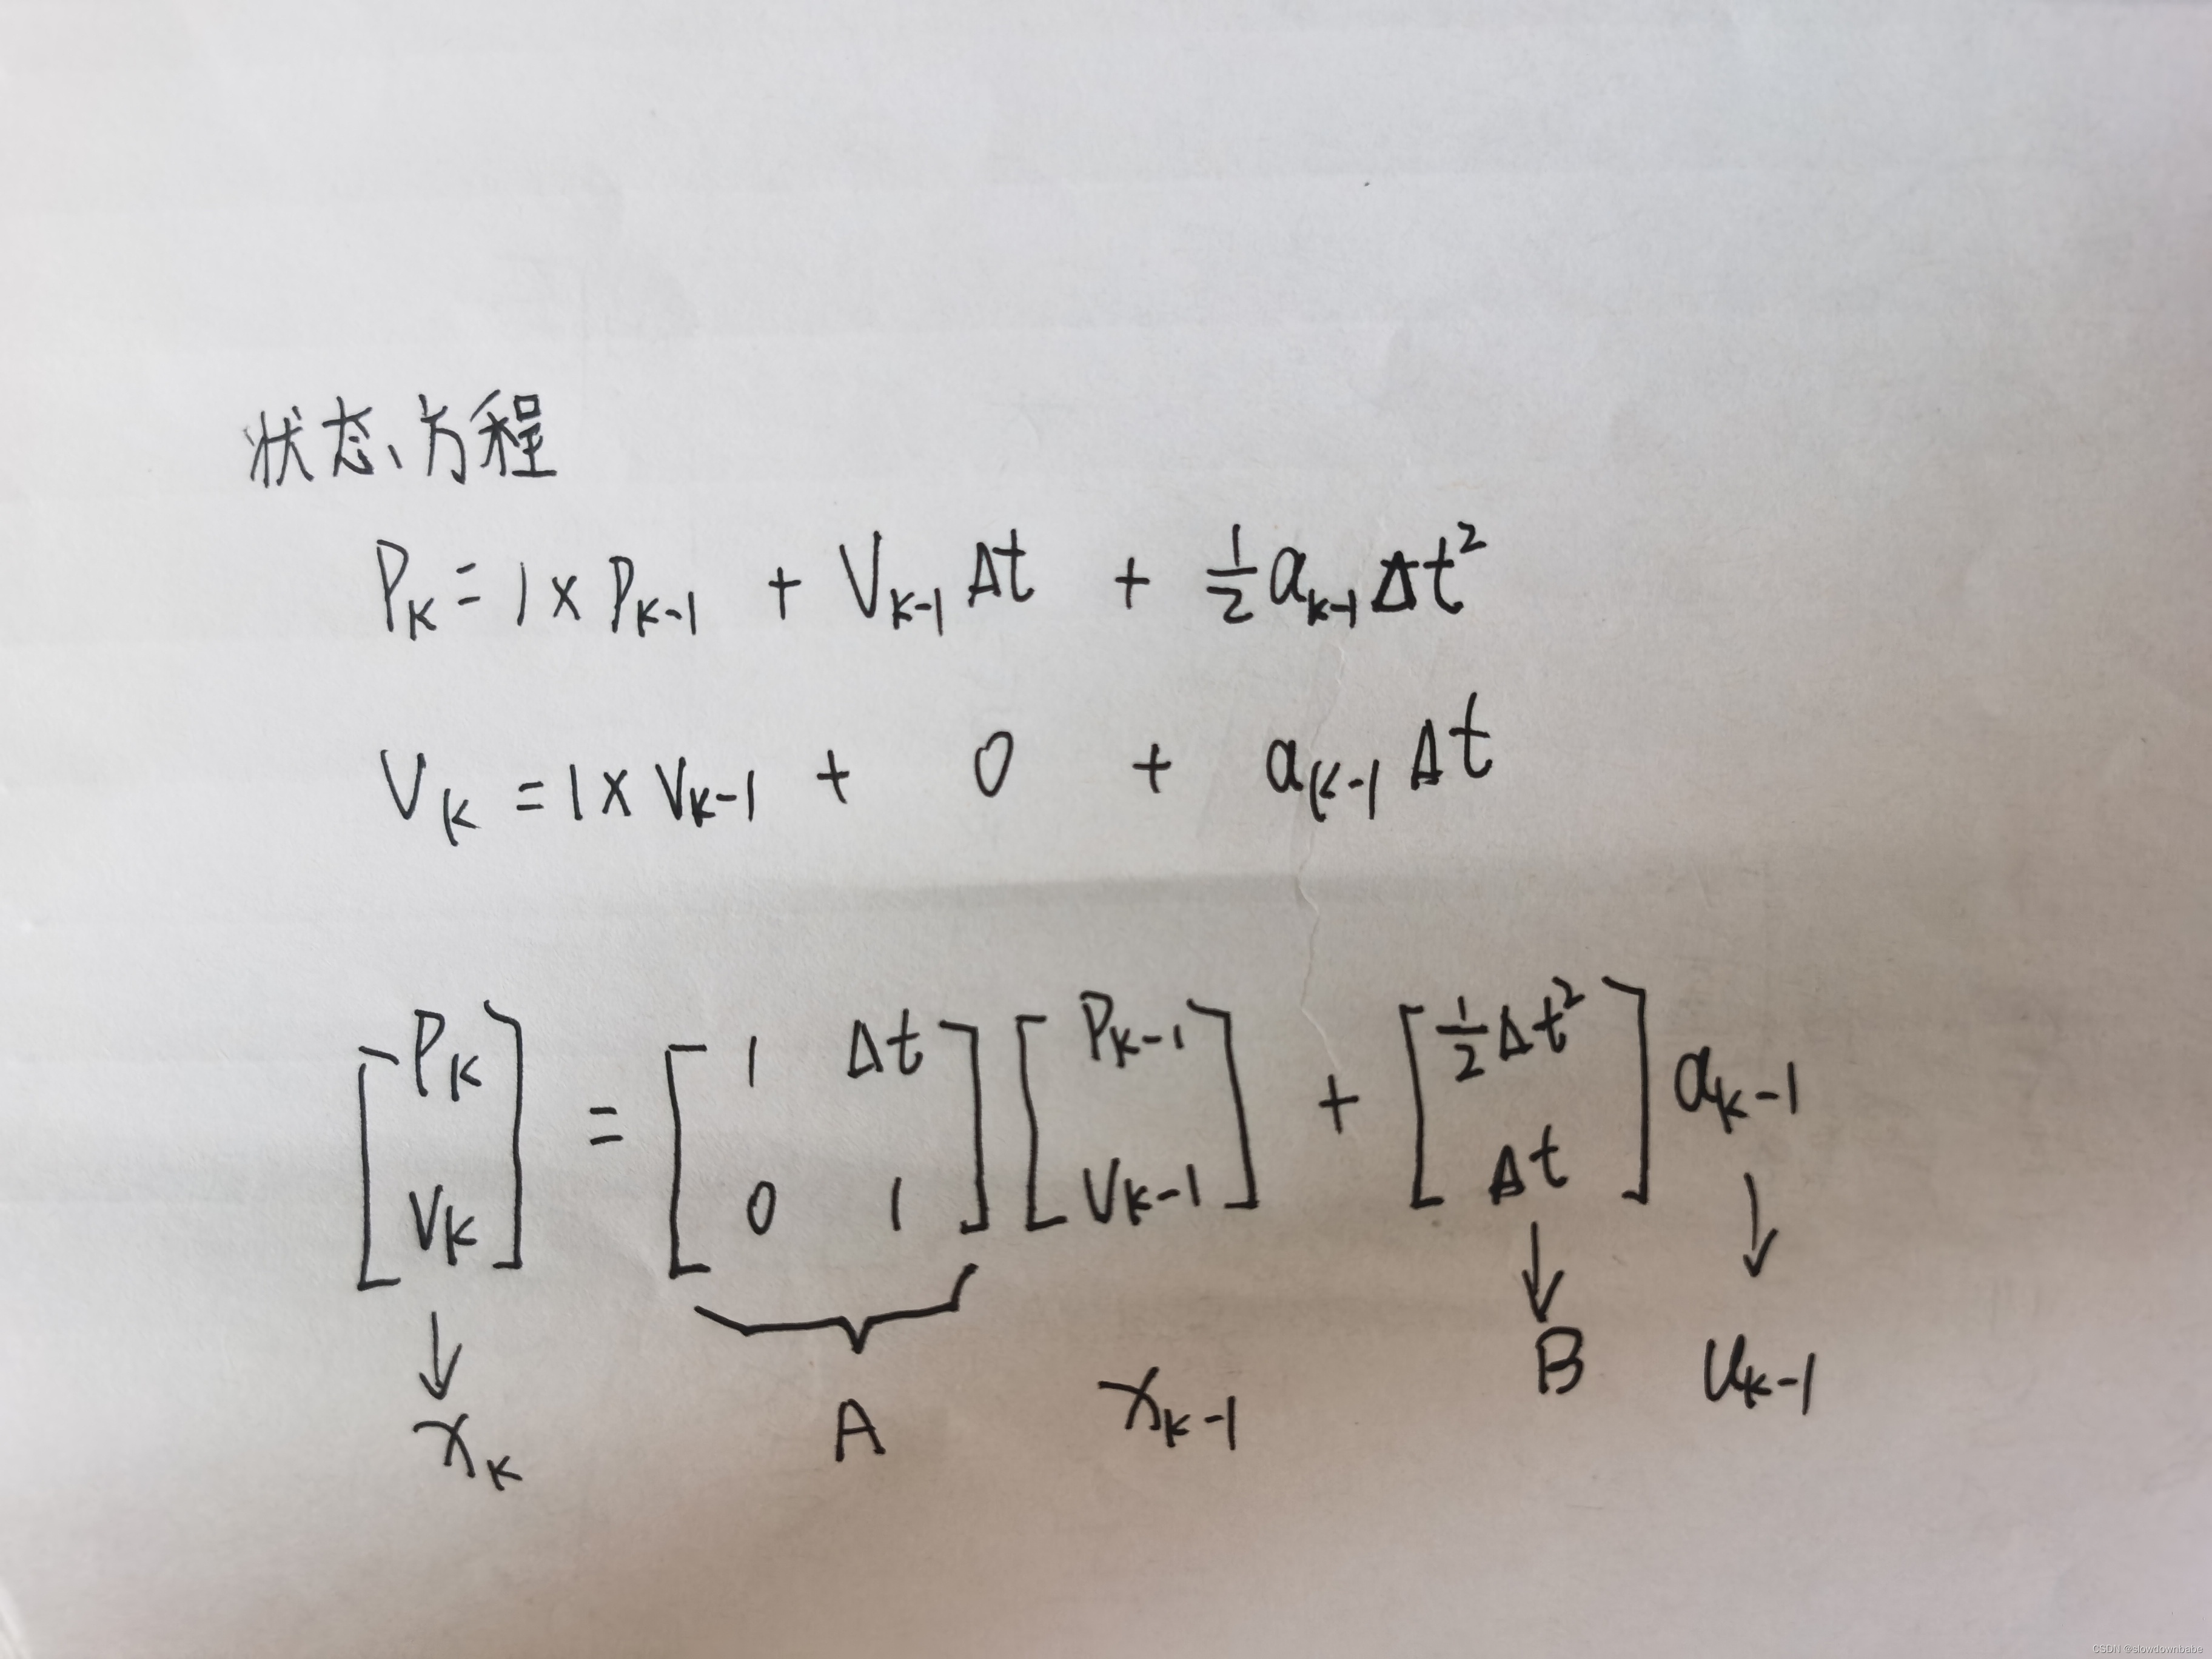 状态方程
P_k = 1 × P_{k-1} + V_{k-1} Δt + ½ a_{k-1} Δt²
V_k = 1 × V_{k-1} + 0 + a_{k-1} Δt
[P_k; V_k] = [1 Δt; 0 1] [P_{k-1}; V_{k-1}] + [½ Δt²; Δt] a_{k-1}
↓ ↓ ↓
x_k A x_{k-1} B u_{k-1}
CSDN @slowdownbabe